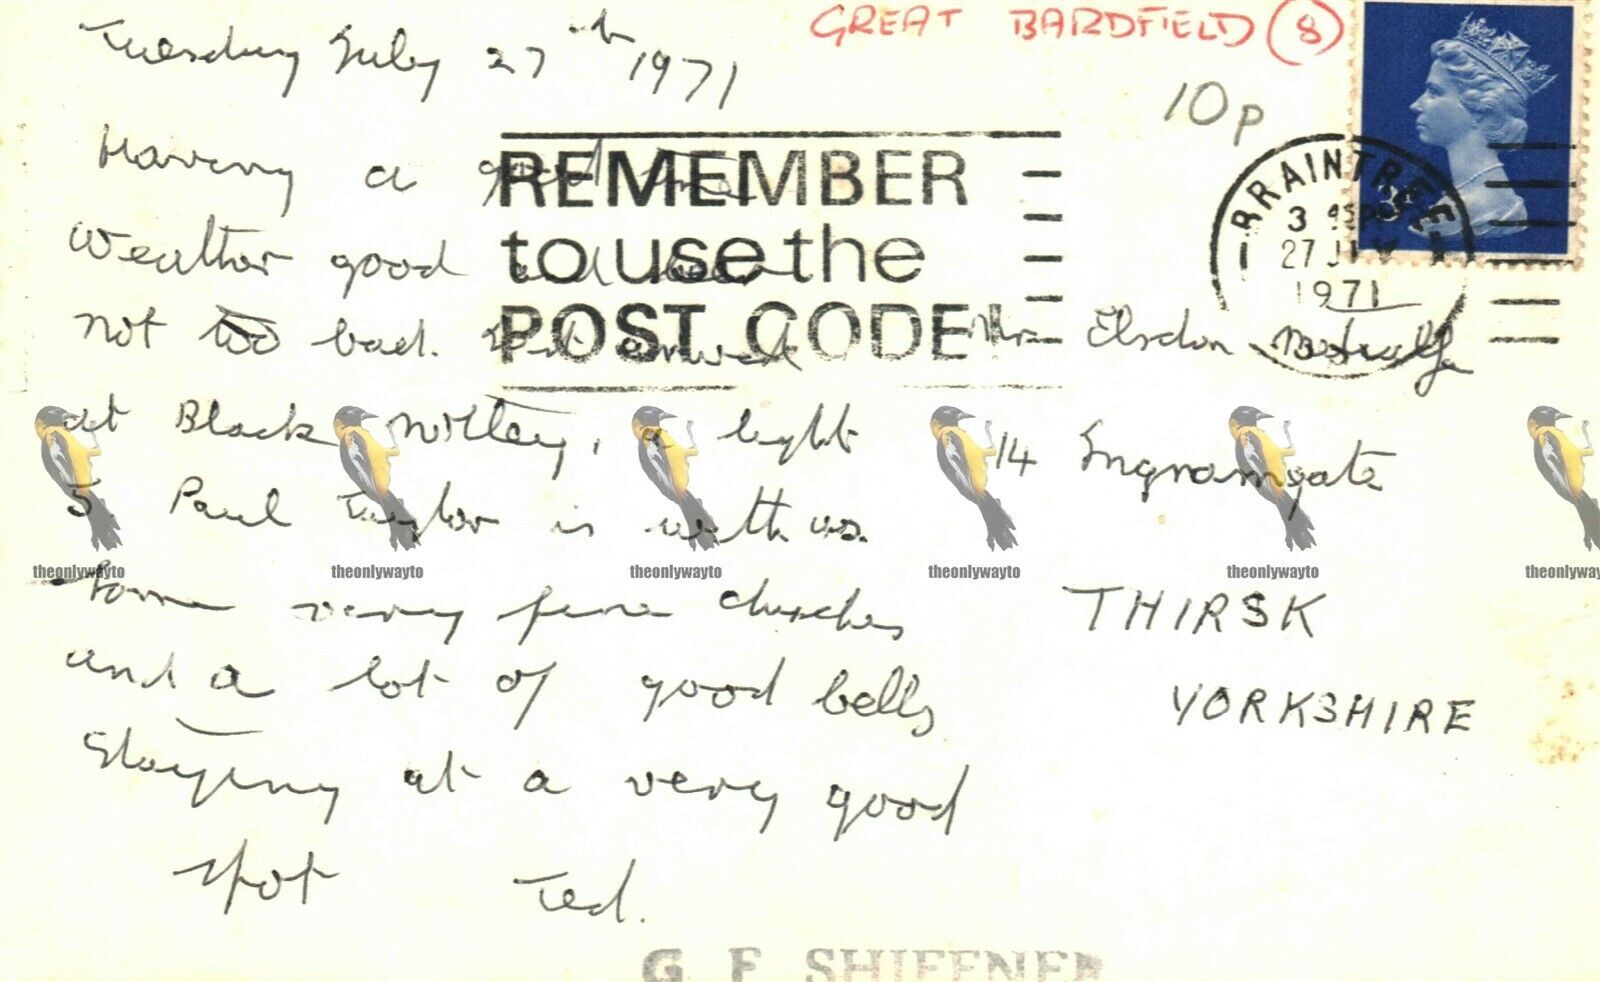 Tuesday July 27th 1971
GREAT BARDFIELD (8)
10p
BRAINTREE
27 
1971
REMEMBER
to use the
POST CODE
Having a good
Weather good and
not too bad.
at Black Nottley, a light
5 Paul Taylor is with us.
Some very fine churches
and a lot of good bells
Staying at a very good
spot Ted.
Mr Elsdon Metcalfe
14 Ingramgate
THIRSK
YORKSHIRE
theonlywayto theonlywayto theonlywayto theonlywayto theonlywayto theonlyway
G F SHIFFNER